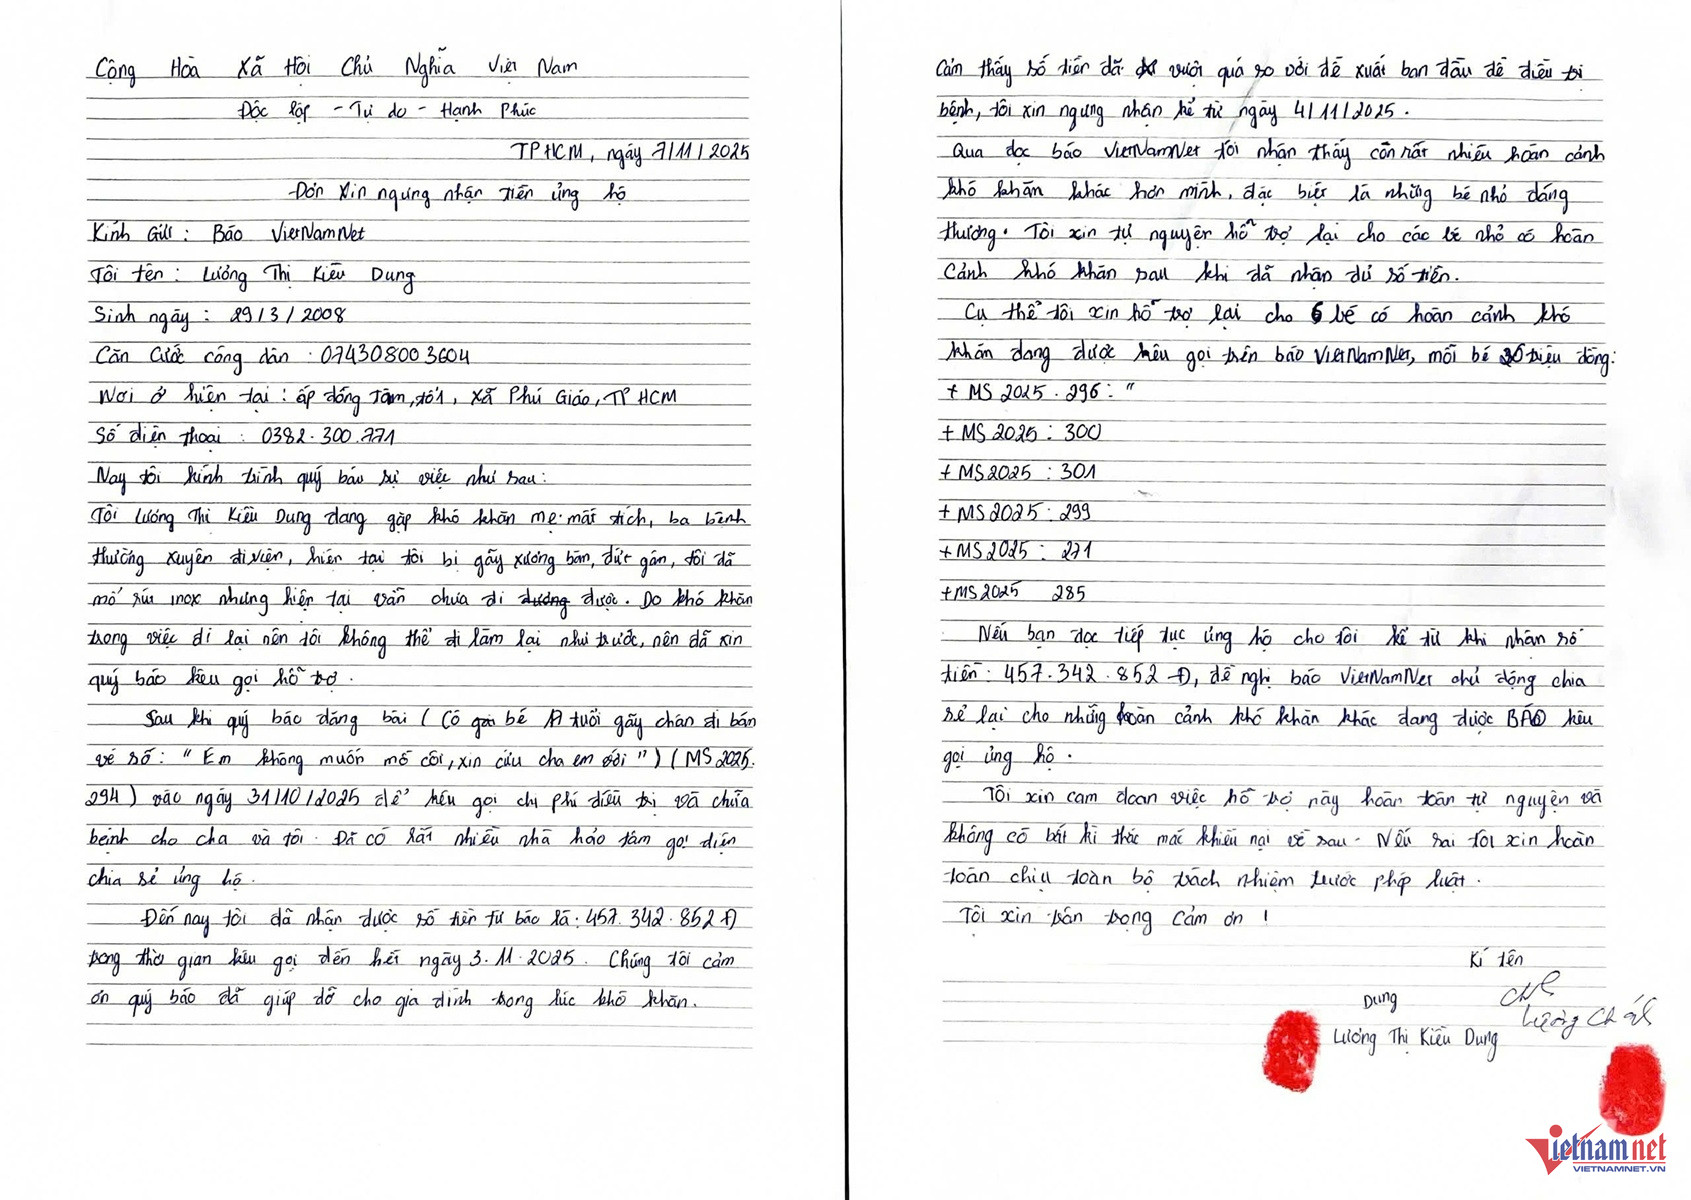 Cộng Hòa Xã Hội Chủ Nghĩa Việt Nam
Độc lập - Tự do - Hạnh Phúc
TPHCM, ngày 7/11/2025
Đơn xin ngưng nhận tiền ủng hộ
Kính Gửi: Báo VietNamNet
Tôi tên: Lương Thị Kiều Dung
Sinh ngày: 29/3/2008
Căn cước công dân: 074308003604
Nơi ở hiện tại: ấp đồng Tâm, tổ 1, xã Phú Giáo, TP HCM
Số điện thoại: 0382.300.771
Nay tôi kính trình quý báo sự việc như sau:
Tôi Lương Thị Kiều Dung đang gặp khó khăn mẹ mất tích, ba bệnh
thường xuyên đi viện, hiện tại tôi bị gãy xương bàn, đứt gân, tôi đã
mổ rút inox nhưng hiện tại vẫn chưa đi được. Do khó khăn
trong việc đi lại nên tôi không thể đi làm lại như trước, nên đã xin
quý báo kêu gọi hỗ trợ.
Sau khi quý báo đăng bài (Cô bé 17 tuổi gãy chân đi bán
vé số: "Em không muốn mồ côi, xin cứu cha em với") (MS 2025.
294) vào ngày 31/10/2025 để kêu gọi chi phí điều trị và chữa
bệnh cho cha và tôi. Đã có rất nhiều nhà hảo tâm gọi điện
chia sẻ ủng hộ.
Đến nay tôi đã nhận được số tiền từ báo là: 457.342.852 Đ
trong thời gian kêu gọi đến hết ngày 3.11.2025. Chúng tôi cảm
ơn quý báo đã giúp đỡ cho gia đình trong lúc khó khăn.
Cảm thấy số tiền đã vượt quá so với đề xuất ban đầu để điều trị
bệnh, tôi xin ngưng nhận kể từ ngày 4/11/2025.
Qua đọc báo VietNamNet tôi nhận thấy còn rất nhiều hoàn cảnh
khó khăn khác hơn mình, đặc biệt là những bé nhỏ đáng
thương. Tôi xin tự nguyện hỗ trợ lại cho các bé nhỏ có hoàn
cảnh khó khăn sau khi đã nhận đủ số tiền.
Cụ thể tôi xin hỗ trợ lại cho 6 bé có hoàn cảnh khó
khăn đang được kêu gọi trên báo VietNamNet, mỗi bé triệu đồng:
+ MS 2025.296: "
+ MS 2025: 300
+ MS 2025: 301
+ MS 2025: 299
+ MS 2025: 271
+ MS 2025 285
Nếu bạn đọc tiếp tục ủng hộ cho tôi kể từ khi nhận số
tiền: 457.342.852 Đ, đề nghị báo VietNamNet chủ động chia
sẻ lại cho những hoàn cảnh khó khăn khác đang được BÁO kêu
gọi ủng hộ.
Tôi xin cam đoan việc hỗ trợ này hoàn toàn tự nguyện và
không có bất kì thắc mắc khiếu nại về sau. Nếu sai tôi xin hoàn
toàn chịu toàn bộ trách nhiệm trước pháp luật.
Tôi xin trân trọng cảm ơn!
Kí tên
Dung
Lương Thị Kiều Dung
Vietnamnet
VIETNAMNET.VN